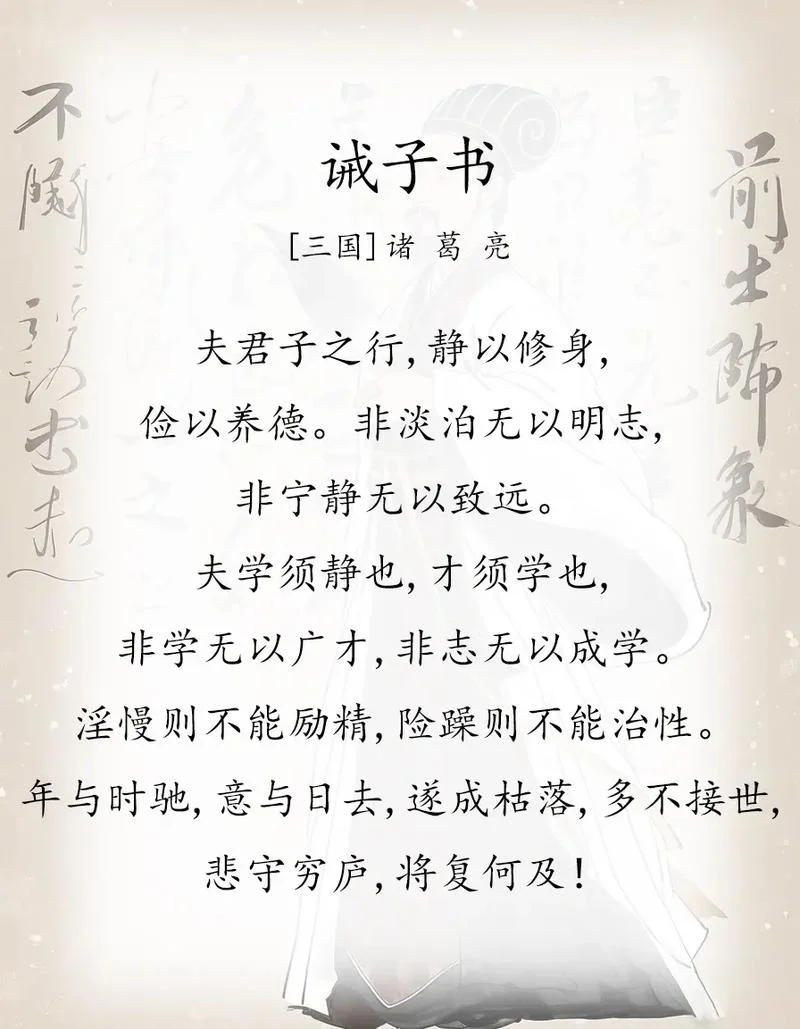 诫子书
[三国]诸 葛 亮
夫君子之行,静以修身,
俭以养德。非淡泊无以明志,
非宁静无以致远。
夫学须静也,才须学也,
非学无以广才,非志无以成学。
淫慢则不能励精,险躁则不能治性。
年与时驰,意与日去,遂成枯落,多不接世,
悲守穷庐,将复何及!